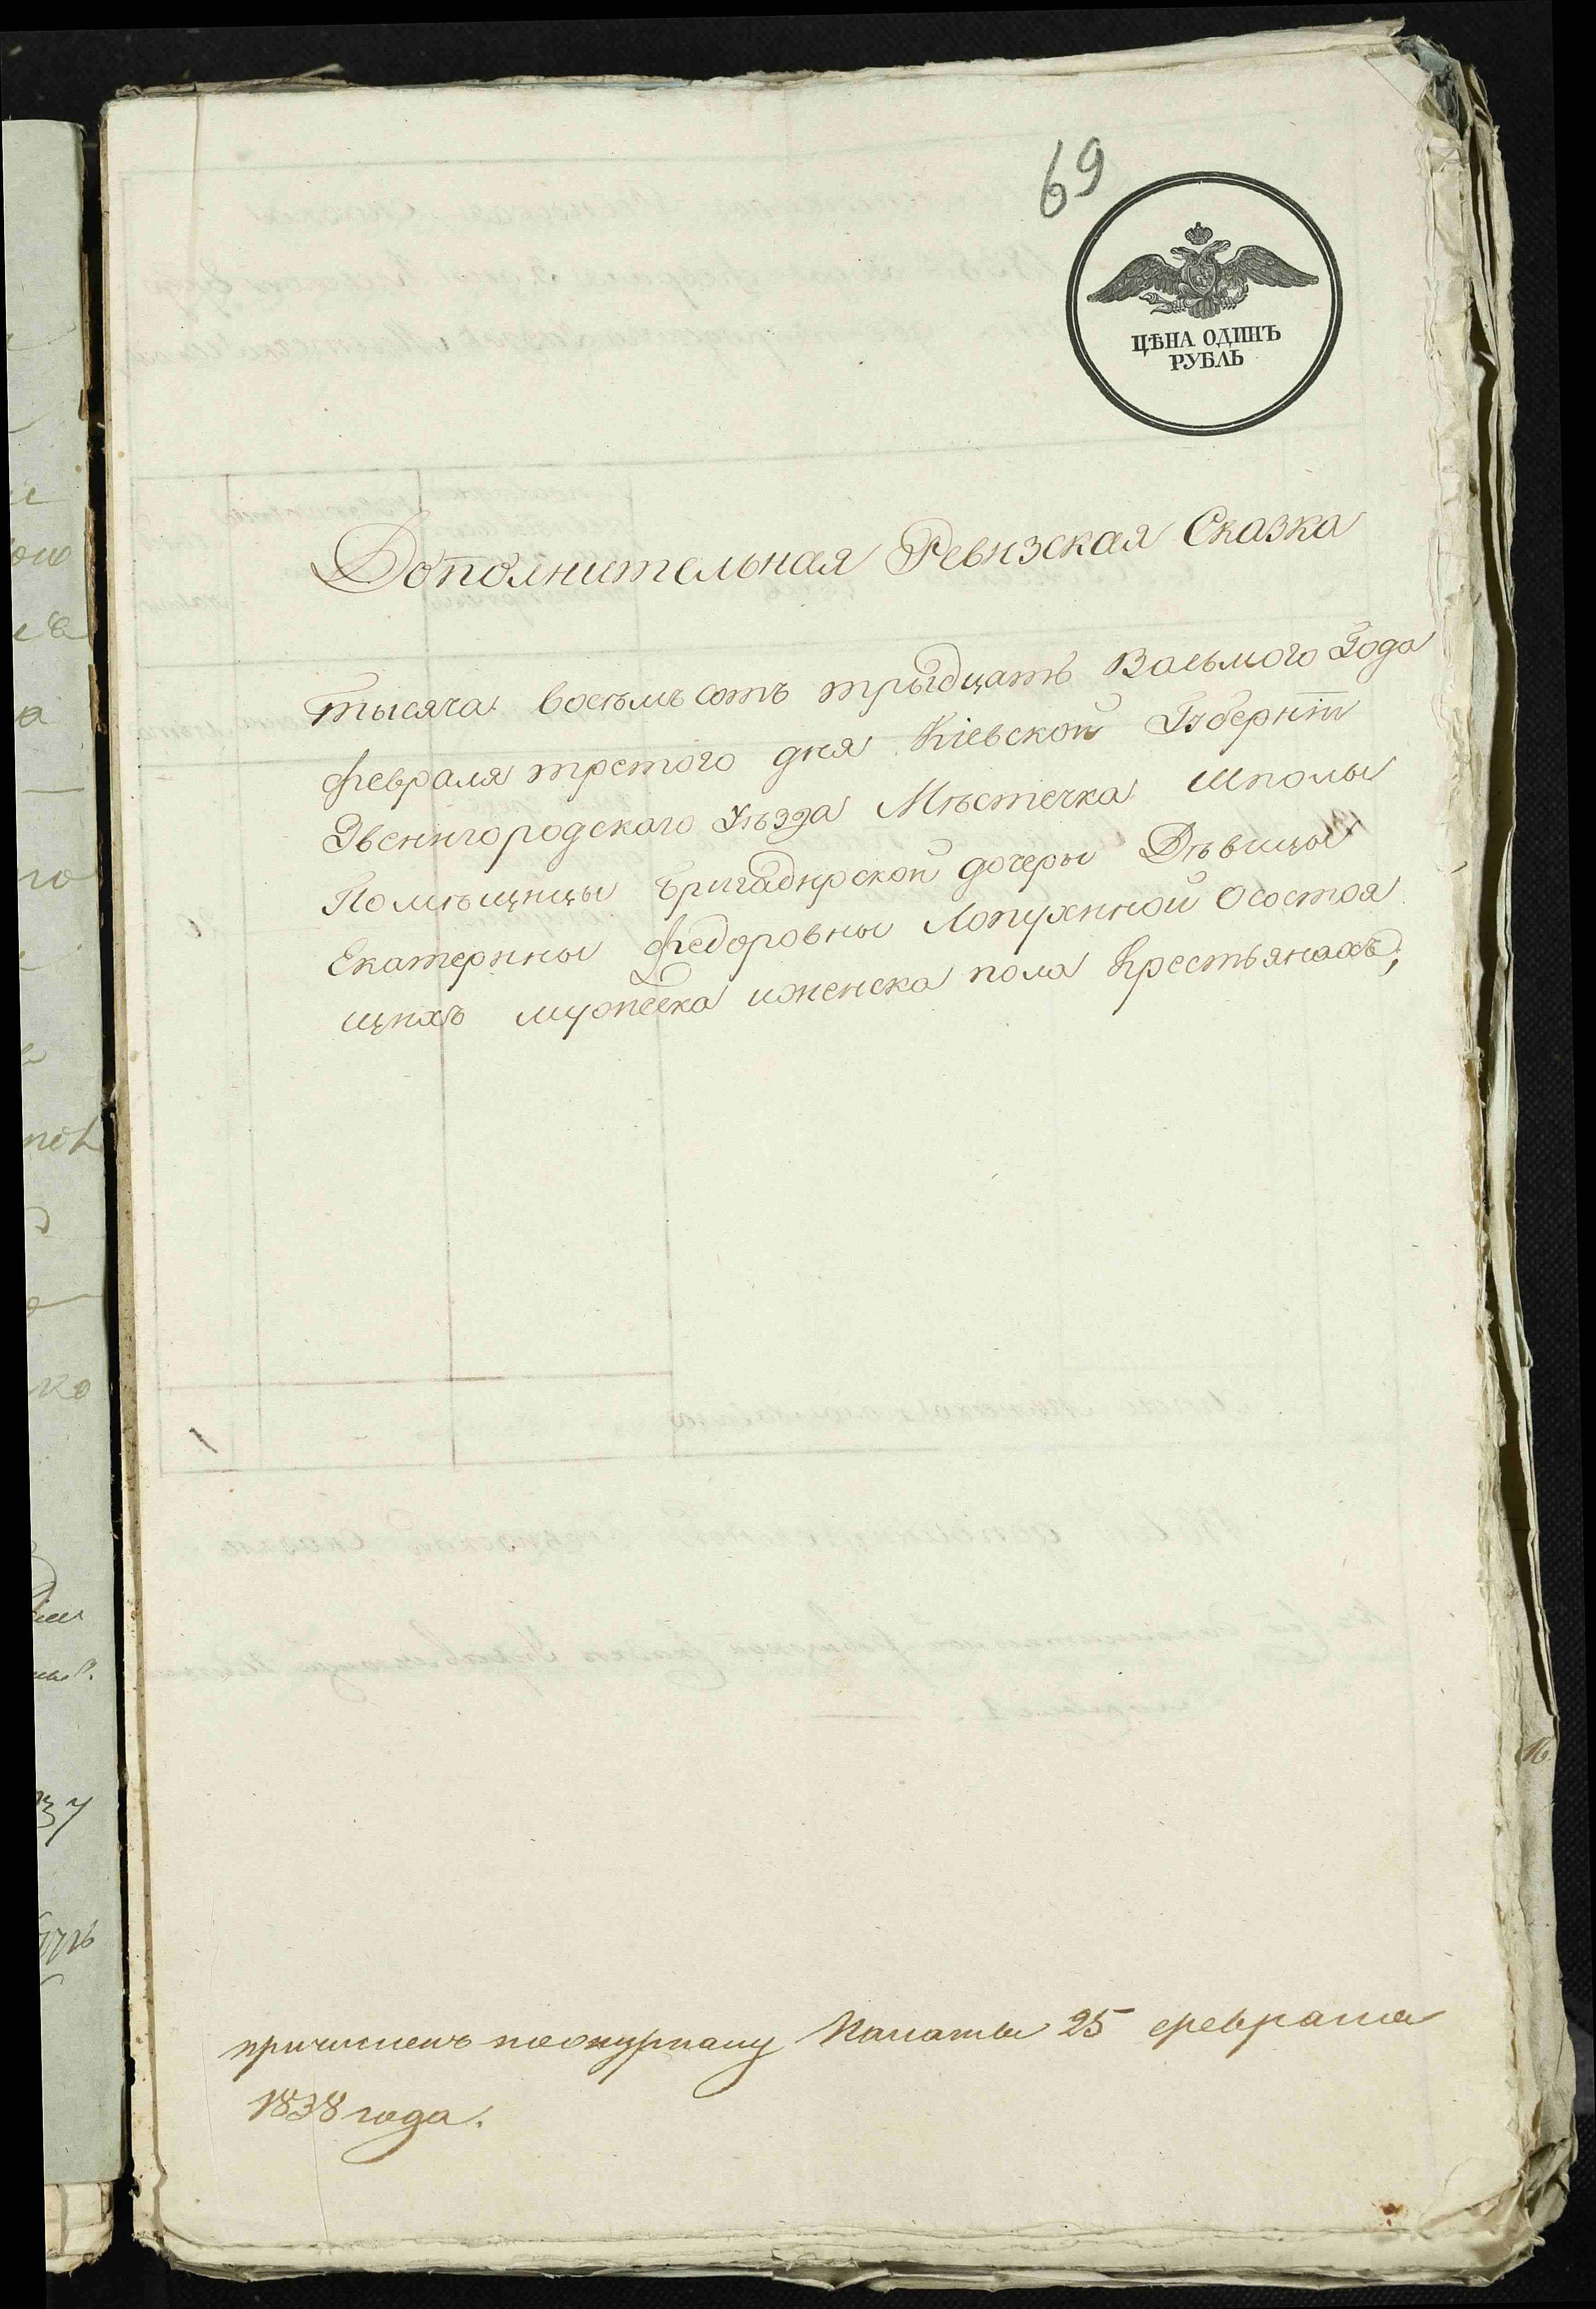 69
ЦѢНА ОДИНЪ
РУБЛЬ
Дополнительная Ревизская Сказка
тысяча восемь сотъ трыдцать Восьмого Года
февраля третого дня Кіевской Губерніи
Звенигородскаго Уѣзда Мѣстечка Шполы
Помѣщицы Бригадирской дочеры Дѣвицы
Екатерины Федоровны Лопухиной О состоя
щихъ мужеска и женска пола Крестьянахъ;
причисленъ по журналу Палаты 25 февраля
1838 года.